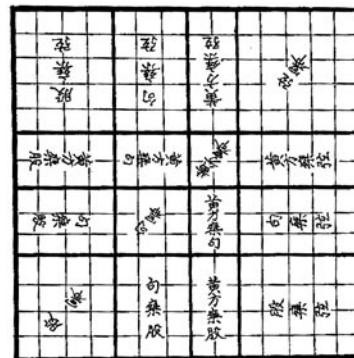 股乘弦
句乘弦
黃方乘弦
弦冪
黃方乘股
黃方乘句
黃冪
黃方乘弦
句乘股
句冪
黃方乘句
句乘弦
股冪
句乘股
黃方乘股
股乘弦